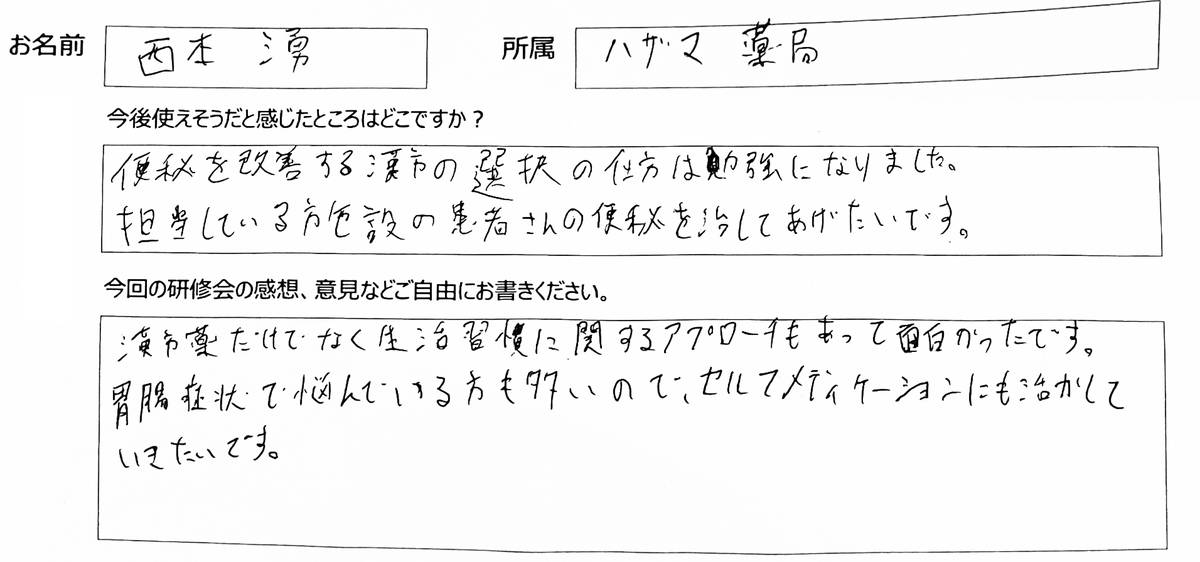 お名前 西本 湧 所属 ハザマ 薬局
今後使えそうだと感じたところはどこですか？
便秘を改善する漢方の選択の仕方は勉強になりました。
担当している施設の患者さんの便秘を治してあげたいです。
今回の研修会の感想、意見などご自由にお書きください。
漢方薬だけでなく生活習慣に関するアプローチもあって面白かったです。
胃腸症状で悩んでいる方も多いので、セルフメディケーションにも活かして
いきたいです。